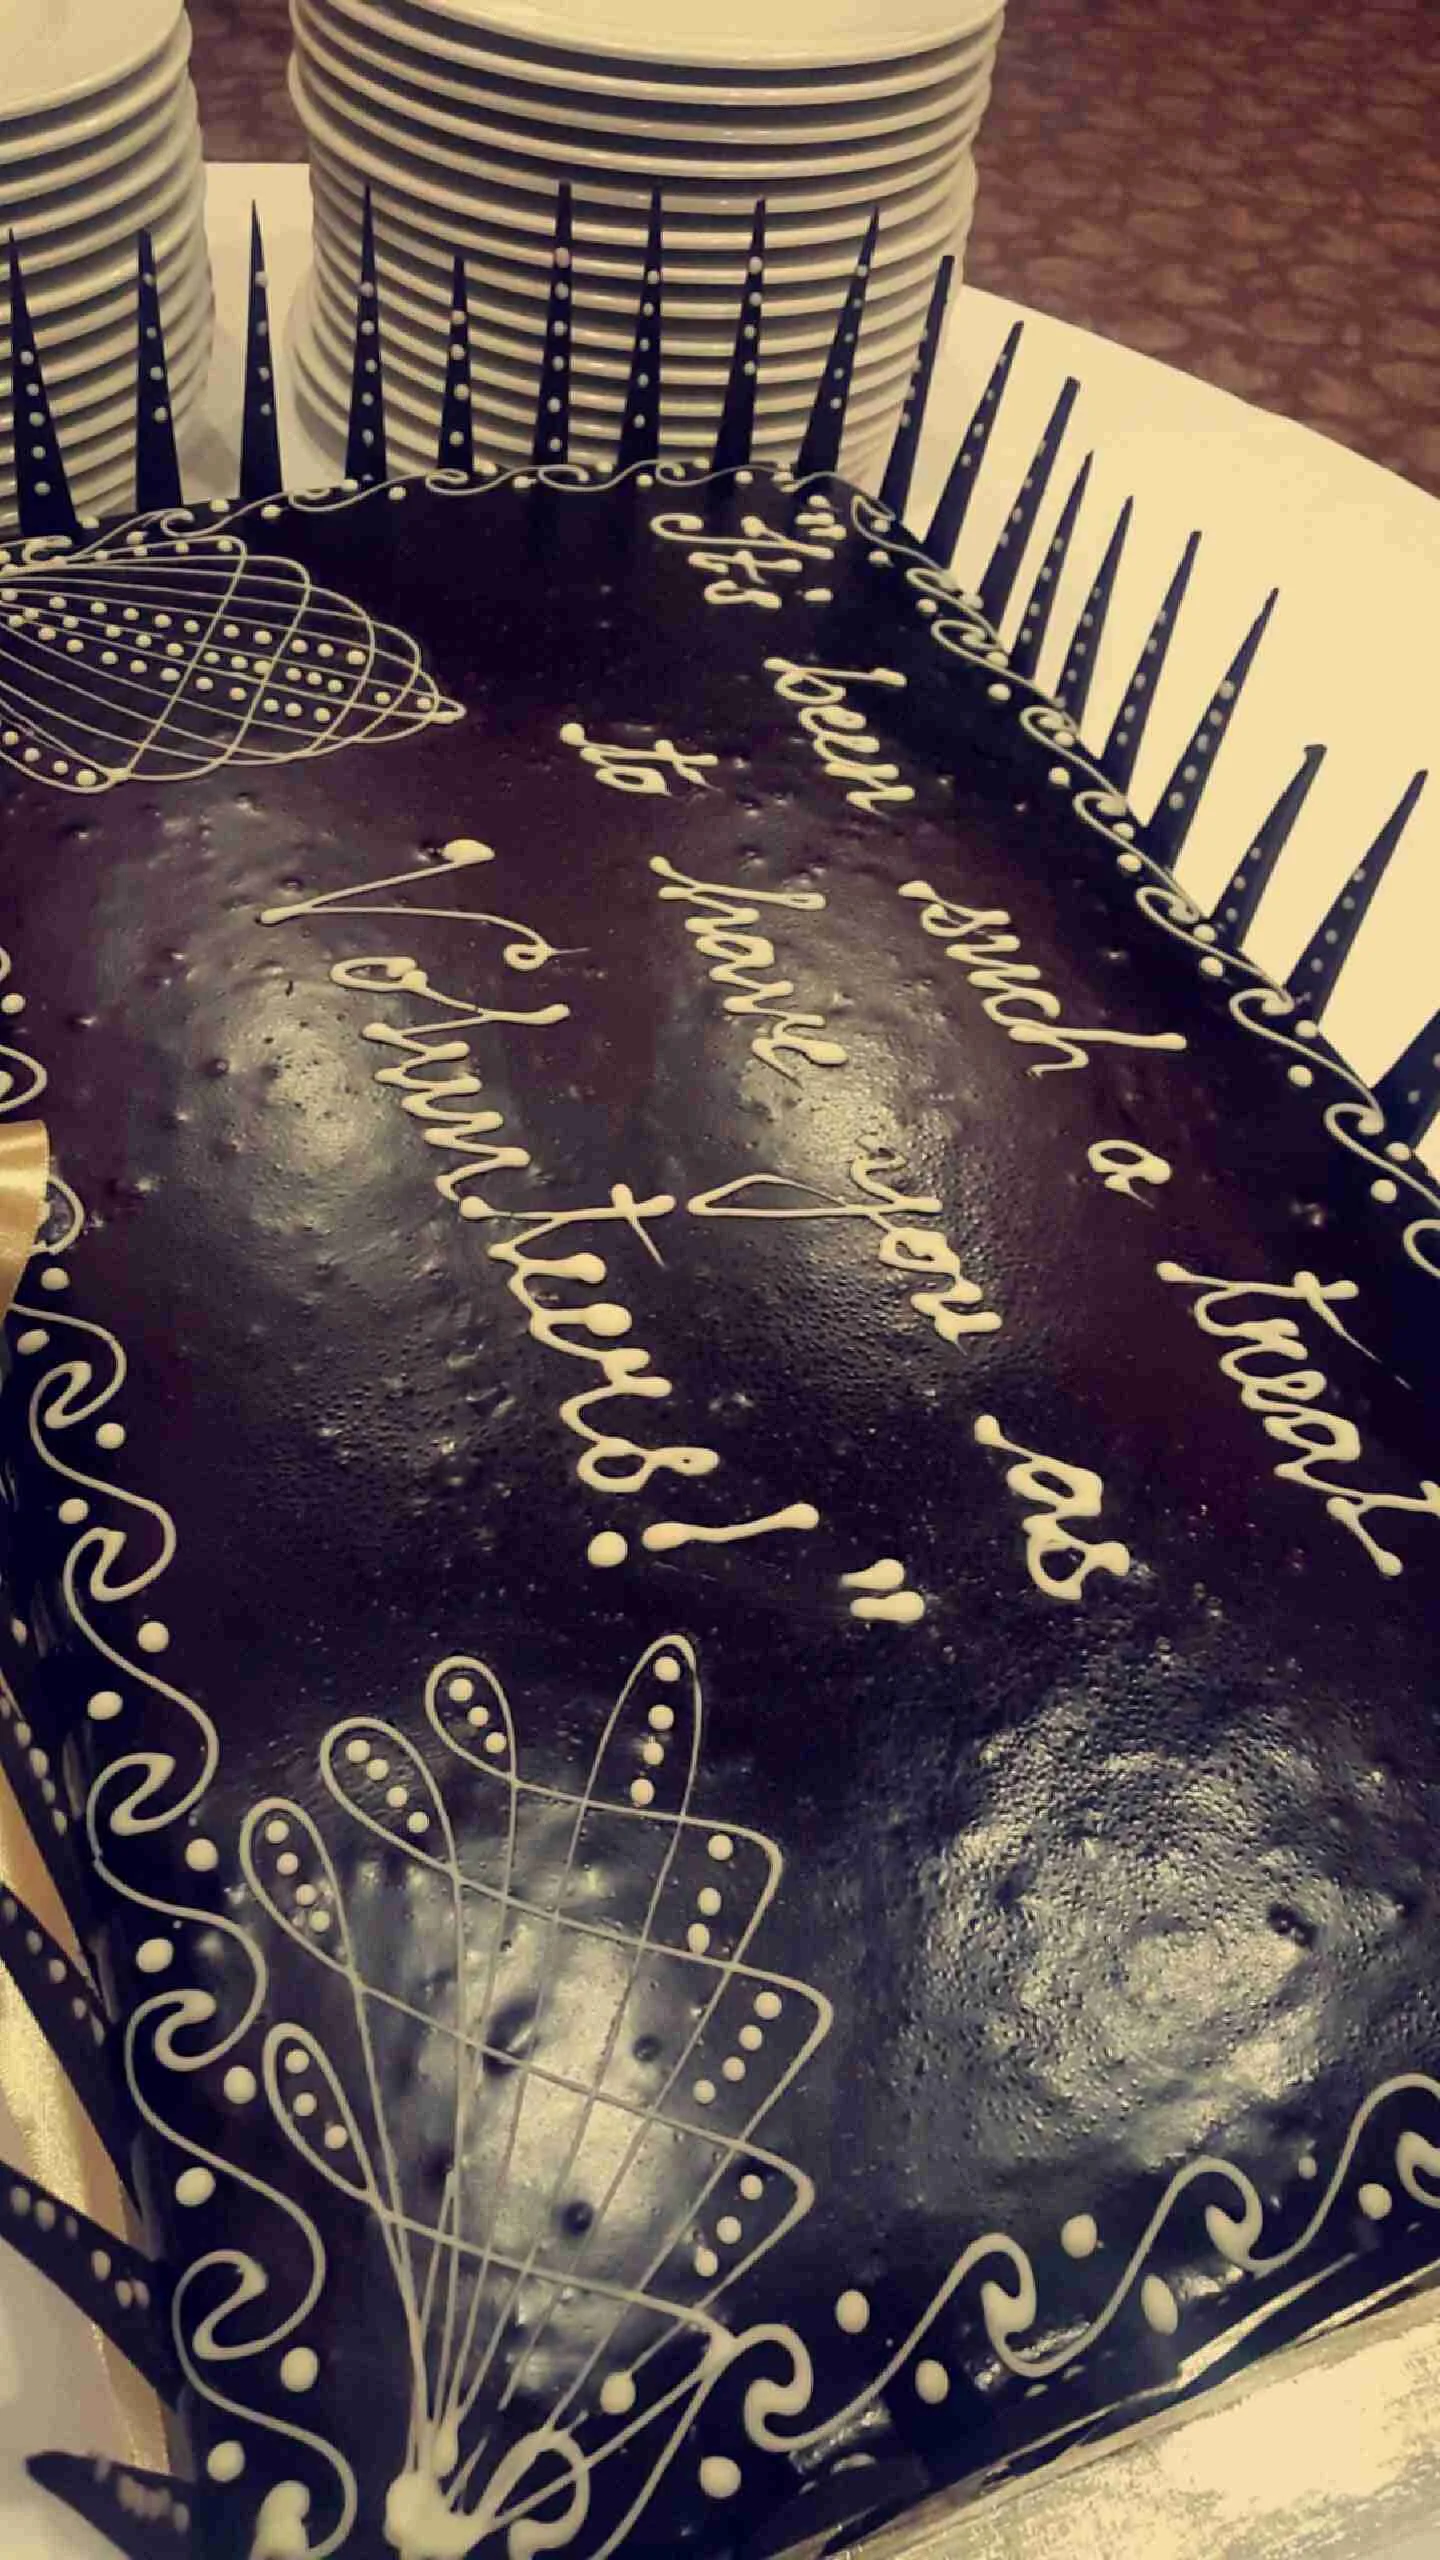 "It's been such a treat
to have you as
Volunteers!"